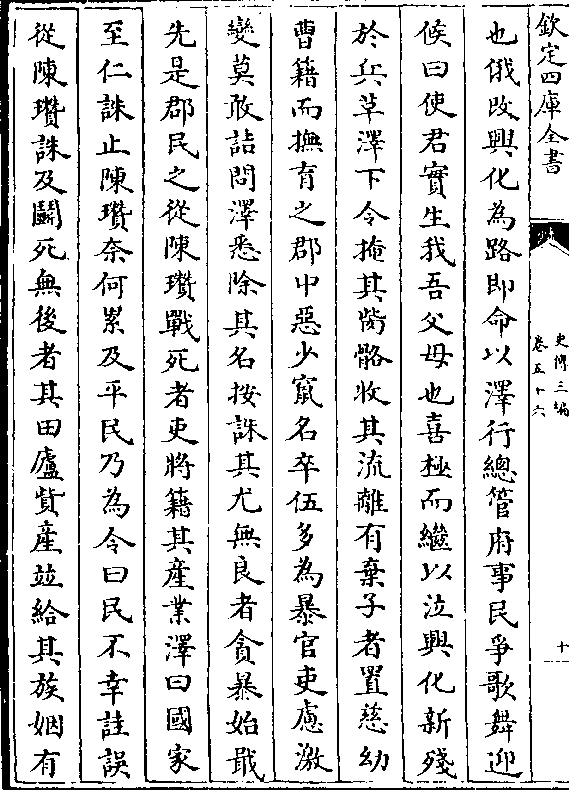 欽定四庫全書
史傳三編
卷五十六
十
也俄改興化為路即命以澤行總管府事民爭歌舞迎
候曰使君實生我吾父母也喜極而繼以泣興化新殘
於兵革澤下令掩其骼收其流離有棄子者置慈幼
曹籍而撫育之郡中惡少竄名卒伍多為暴官吏慮激
變莫敢詰問澤悉除其名按誅其尤無良者貪暴始戢
先是郡民之從陳瓚戰死者吏將籍其產業澤曰國家
至仁誅止陳瓚奈何累及平民乃為令曰民不幸詿誤
從陳瓚誅及鬭死無後者其田廬貲産並給其族姻有